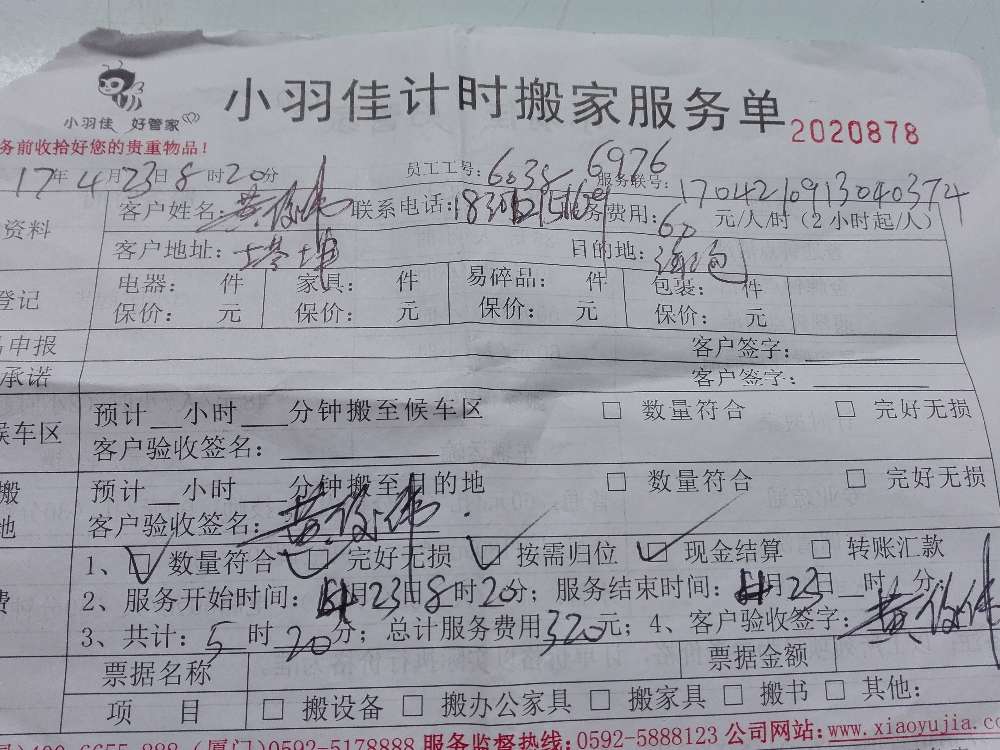 小羽佳 好管家
小羽佳计时搬家服务单
2020878
务前收拾好您的贵重物品！
17年4月23日8时20分 员工工号： 6976 服务联号：1704210913040374
资料 客户姓名：黄俊伟 联系电话： 费用：60 元/人/时（2小时起/人）
客户地址：塔埔 目的地：
登记 电器： 件 家具： 件 易碎品： 件 包装： 件
保价： 元 保价： 元 保价： 元 保价： 元
申报 客户签字：
承诺 客户签字：
预计 小时 分钟搬至候车区 □ 数量符合 □ 完好无损
候车区 客户验收签名：
搬 预计 小时 分钟搬至目的地 □ 数量符合 □ 完好无损
地 客户验收签名：黄俊伟
1、☑ 数量符合 ☑ 完好无损 ☑ 按需归位 ☑ 现金结算 □ 转账汇款
费 2、服务开始时间：4月23日8时20分；服务结束时间：4月23日 时 分；
3、共计：5时20分；总计服务费用320元；4、客户验收签字：黄俊伟
票据名称 票据金额
项 目 □ 搬设备 □ 搬办公家具 □ 搬家具 □ 搬书 □ 其他：
400-6655-888（厦门）0592-5178888 服务监督热线：0592-5888123 公司网站：www.xiaoyujia.com